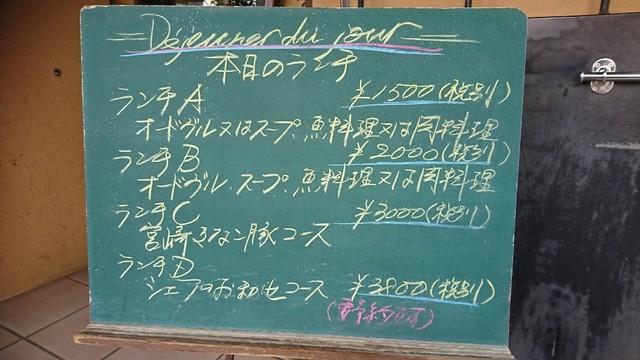 Déjeuner du jour
本日のランチ
ランチA ¥1500(税別)
オードヴル又はスープ、魚料理又は肉料理
ランチB ¥2000(税別)
オードヴル、スープ、魚料理又は肉料理
ランチC ¥3000(税別)
宮崎きなこ豚コース
ランチD
シェフのおまかせコース ¥3800(税別)